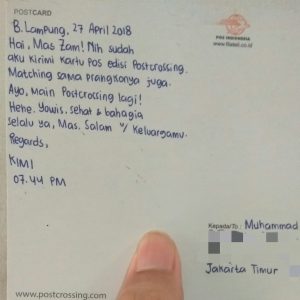 POSTCARD
POS INDONESIA
www.filateli.co.id
B. Lampung, 27 April 2018
Hai, Mas Zam! Nih sudah
aku kirimi kartu pos edisi Postcrossing.
Matching sama prangkonya juga.
Ayo, main Postcrossing lagi!
Hehe. Yowis, sehat & bahagia
selalu ya, Mas. Salam u/ Keluargamu.
Regards,
KIMI
07.44 PM
Kepada/To : Muhammad
Jakarta Timur
www.postcrossing.com